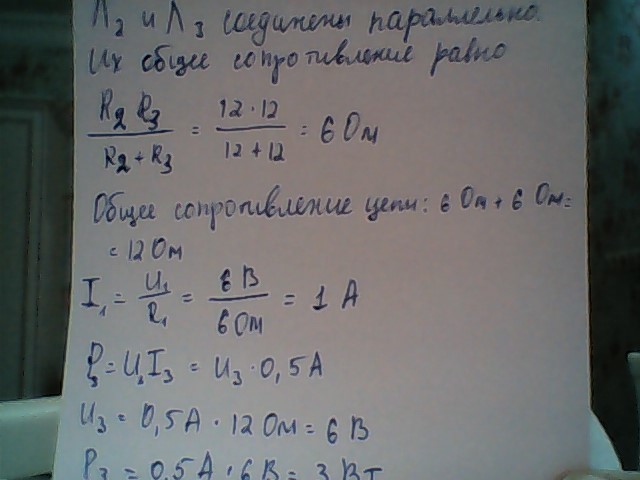 Л₂ и Л₃ соединены параллельно.
Их общее сопротивление равно
R₂ R₃ / R₂ + R₃ = 12 · 12 / 12 + 12 = 6 Ом
Общее сопротивление цепи: 6 Ом + 6 Ом =
= 12 Ом
I₁ = U₁ / R₁ = 6 В / 6 Ом = 1 А
P₃ = U₃ I₃ = U₃ · 0,5 А
U₃ = 0,5 А · 12 Ом = 6 В
P₃ = 0,5 А · 6 В = 3 Вт